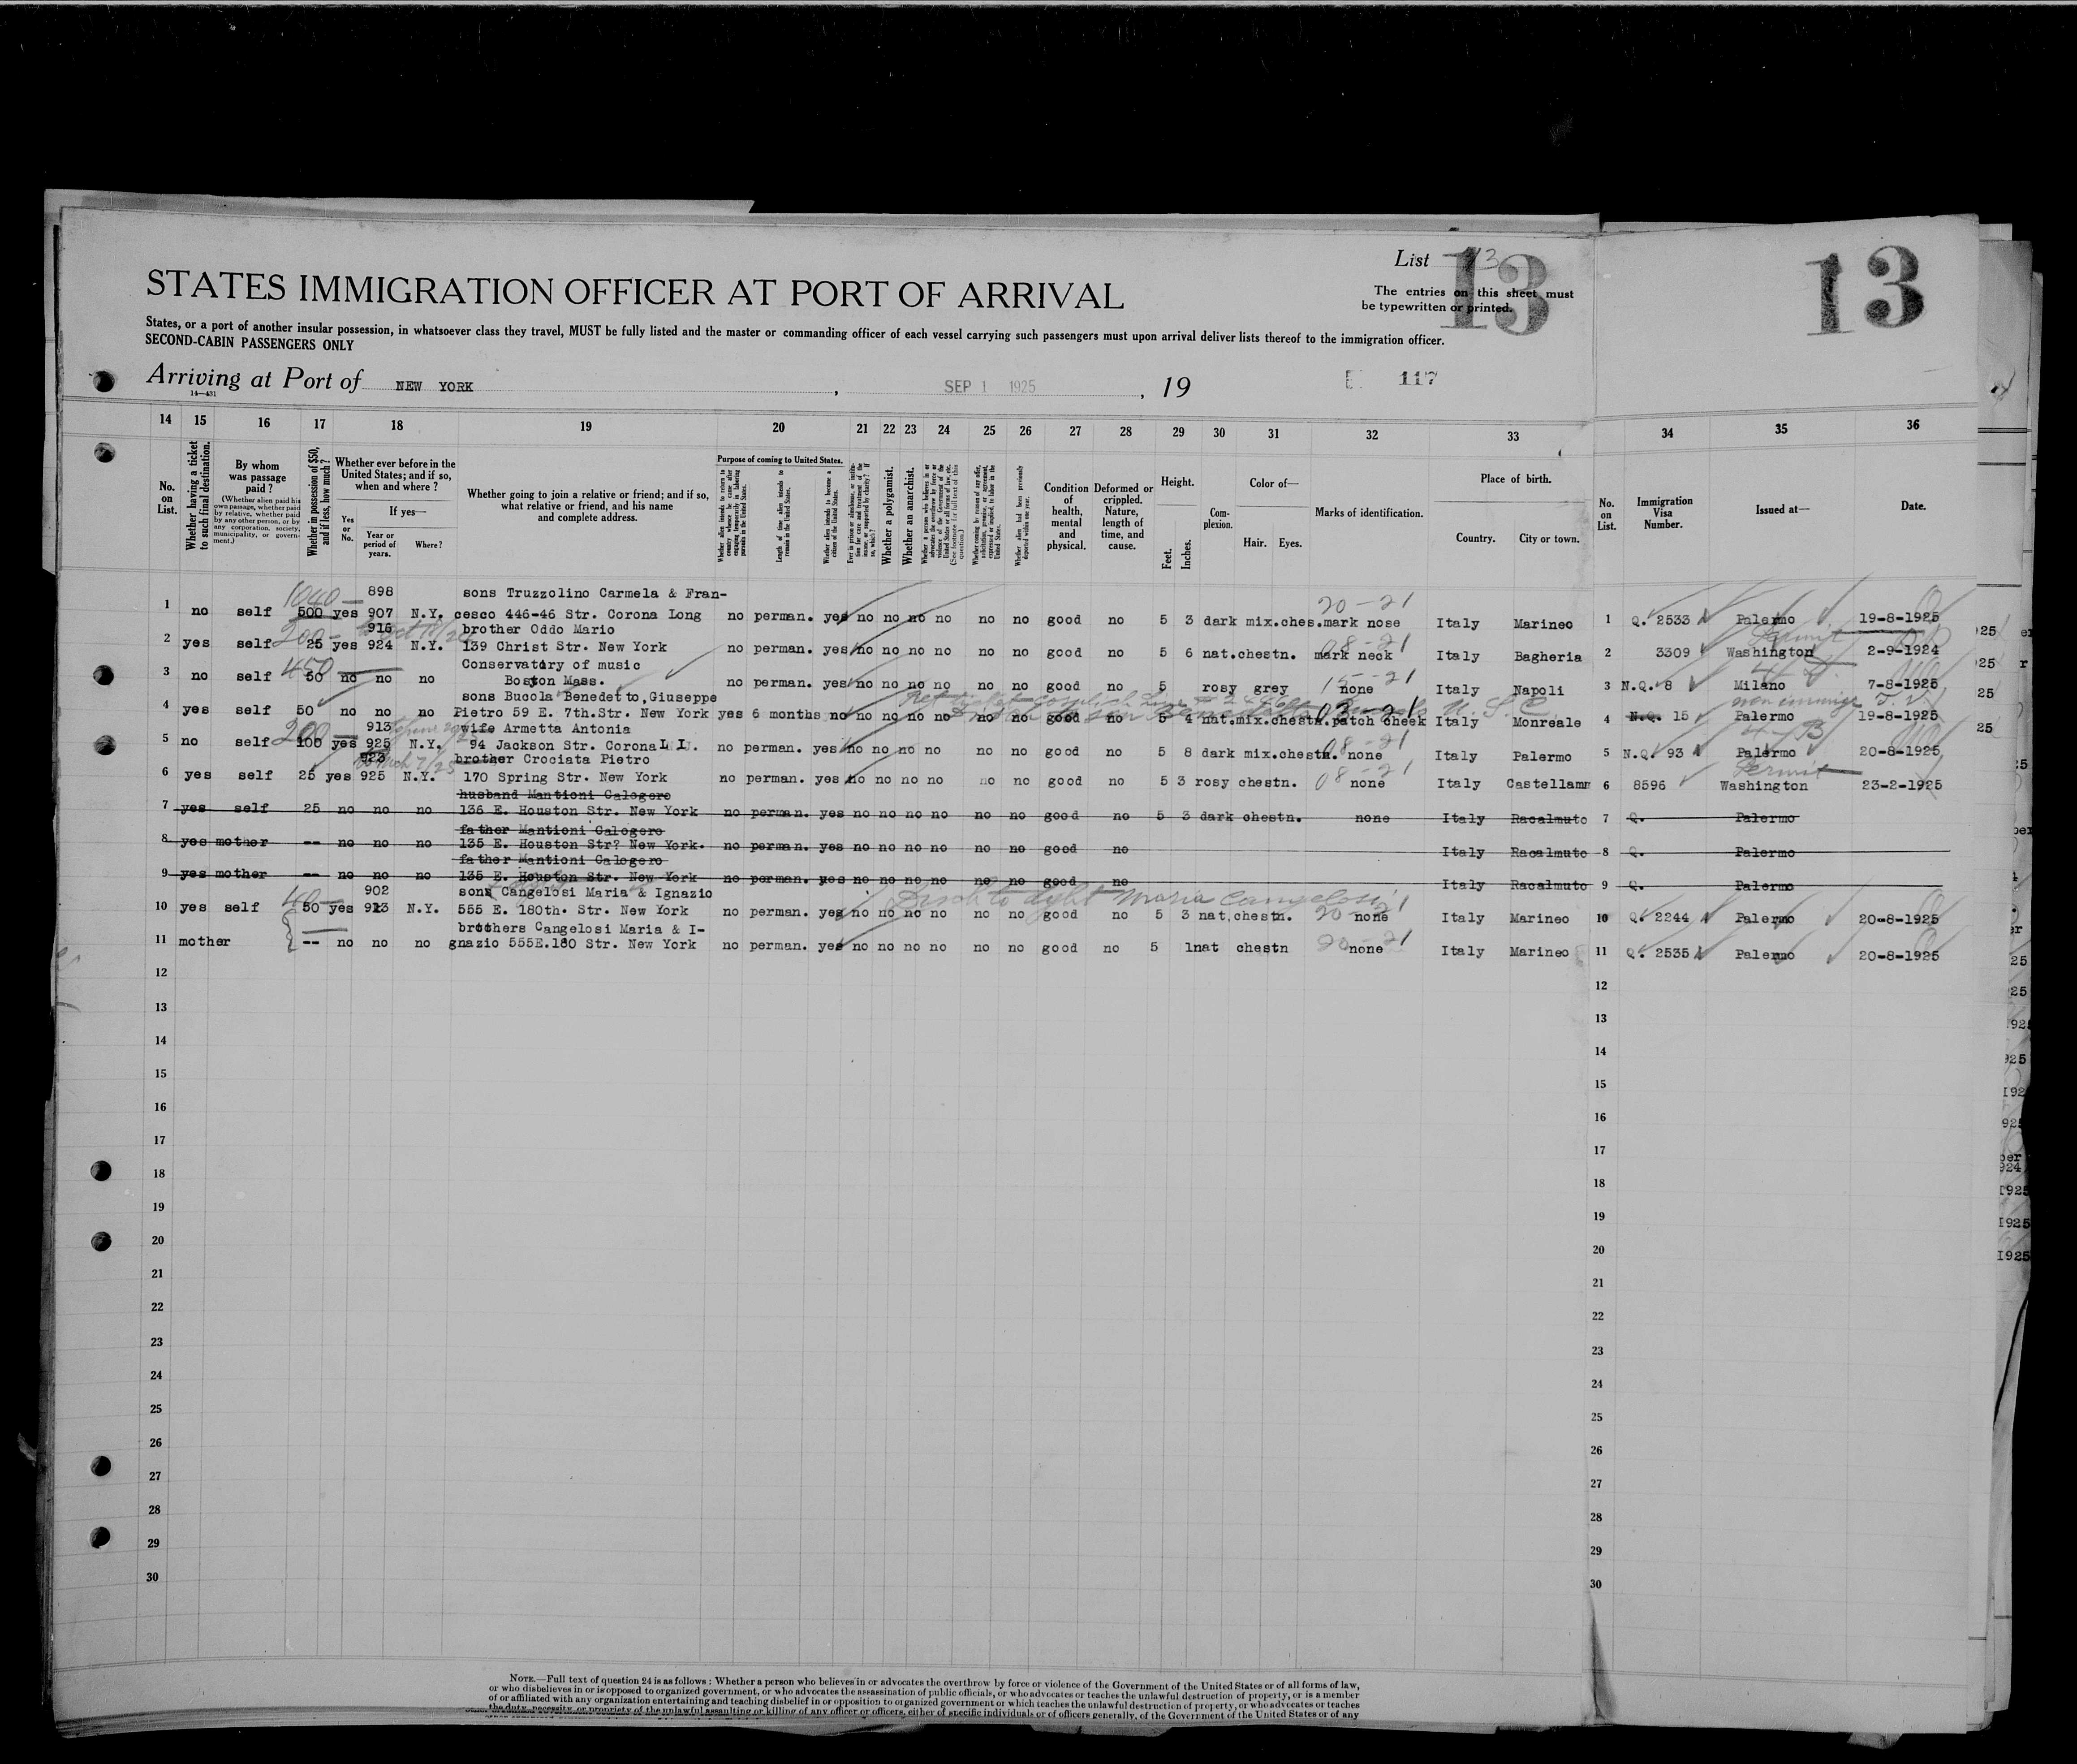 List 13
13
13
STATES IMMIGRATION OFFICER AT PORT OF ARRIVAL
The entries on this sheet must
be typewritten or printed.
States, or a port of another insular possession, in whatsoever class they travel, MUST be fully listed and the master or commanding officer of each vessel carrying such passengers must upon arrival deliver lists thereof to the immigration officer.
SECOND-CABIN PASSENGERS ONLY
Arriving at Port of NEW YORK , SEP 1 1925 , 19
117
14—431
14 15 16 17 18 19 20 21 22 23 24 25 26 27 28 29 30 31 32 33 34 35 36
No. on List.
Whether having a ticket to such final destination.
By whom was passage paid?
(Whether alien paid his own passage, whether paid by relative, whether paid by any other person, or by any corporation, society, municipality, or government.)
Whether in possession of $50, and if less, how much?
Whether ever before in the United States; and if so, when and where?
Yes or No.
If yes—
Year or period of years.
Where?
Whether going to join a relative or friend; and if so, what relative or friend, and his name and complete address.
Purpose of coming to United States.
Whether alien intends to return to country whence he came after engaging temporarily in laboring pursuits in the United States.
Length of time alien intends to remain in the United States.
Whether alien intends to become a citizen of the United States.
Whether a polygamist.
Whether an anarchist.
Condition of health, mental and physical.
Deformed or crippled. Nature, length of time, and cause.
Height.
Feet.
Inches.
Complexion.
Color of—
Hair. Eyes.
Marks of identification.
Place of birth.
Country. City or town.
No. on List.
Immigration Visa Number.
Issued at—
Date.
1040— 898 sons Truzzolino Carmela & Fran- 20-21
1 no self 500 yes 907 N.Y. cesco 446-46 Str. Corona Long no perman. yes no no no no no no good no 5 3 dark mix.ches.mark nose Italy Marineo 1 Q. 2533 Palermo 19-8-1925
200— 916 brother Oddo Mario 08-21 Permit
2 yes self 25 yes 924 N.Y. 139 Christ Str. New York no perman. yes no no no no no no good no 5 6 nat.chestn. mark neck Italy Bagheria 2 3309 Washington 2-9-1924
450— Conservatory of music 15-21
3 no self 50 no no no Boston Mass. no perman. yes no no no no no no good no 5 rosy grey none Italy Napoli 3 N.Q. 8 Milano 7-8-1925
sons Bucola Benedetto,Giuseppe 08-21
4 yes self 50 no no no Pietro 59 E. 7th.Str. New York yes 6 months no no no no no no no good no 5 4 nat.mix.chestn.patch cheek Italy Monreale 4 N.Q. 15 Palermo 19-8-1925
200— 913 wife Armetta Antonia 08-21
5 no self 100 yes 925 N.Y. 94 Jackson Str. Corona L I. no perman. yes no no no no no no good no 5 8 dark mix.chestn. none Italy Palermo 5 N.Q. 93 Palermo 20-8-1925
923 brother Crociata Pietro 08-21 Permit
6 yes self 25 yes 925 N.Y. 170 Spring Str. New York no perman. yes no no no no no no good no 5 3 rosy chestn. none Italy Castellamm 6 8596 Washington 23-2-1925
husband Mantioni Calogero
7 yes self 25 no no no 136 E. Houston Str. New York no perman. yes no no no no no no good no 5 3 dark chestn. none Italy Racalmuto 7 Q. Palermo
father Mantioni Calogero
8 yes mother -- no no no 135 E. Houston Str? New York. no perman. yes no no no no no no good no Italy Racalmuto 8 Q. Palermo
father Mantioni Calogero
9 yes mother -- no no no 135 E. Houston Str. New York no perman. yes no no no no no no good no Italy Racalmuto 9 Q. Palermo
40— 902 sons Cangelosi Maria & Ignazio Maria Cangelosi
10 yes self 50 yes 913 N.Y. 555 E. 180th. Str. New York no perman. yes no no no no no no good no 5 3 nat,chestn. 20-21 none Italy Marineo 10 Q. 2244 Palermo 20-8-1925
brothers Cangelosi Maria & I-
11 mother -- no no no gnazio 555E.180 Str. New York no perman. yes no no no no no no good no 5 1nat chestn 20-21 none Italy Marineo 11 Q. 2535 Palermo 20-8-1925
12 12
13 13
14 14
15 15
16 16
17 17
18 18
19 19
20 20
21 21
22 22
23 23
24 24
25 25
26 26
27 27
28 28
29 29
30 30
NOTE.—Full text of question 24 is as follows: Whether a person who believes in or advocates the overthrow by force or violence of the Government of the United States or of all forms of law,
or who disbelieves in or is opposed to organized government, or who advocates the assassination of public officials, or who advocates or teaches the unlawful destruction of property, or is a member
of or affiliated with any organization entertaining and teaching disbelief in or opposition to organized government or which teaches the unlawful destruction of property, or who advocates or teaches
the duty, necessity, or propriety of the unlawful assaulting or killing of any officer or officers, either of specific individuals or of officers generally, of the Government of the United States or of any